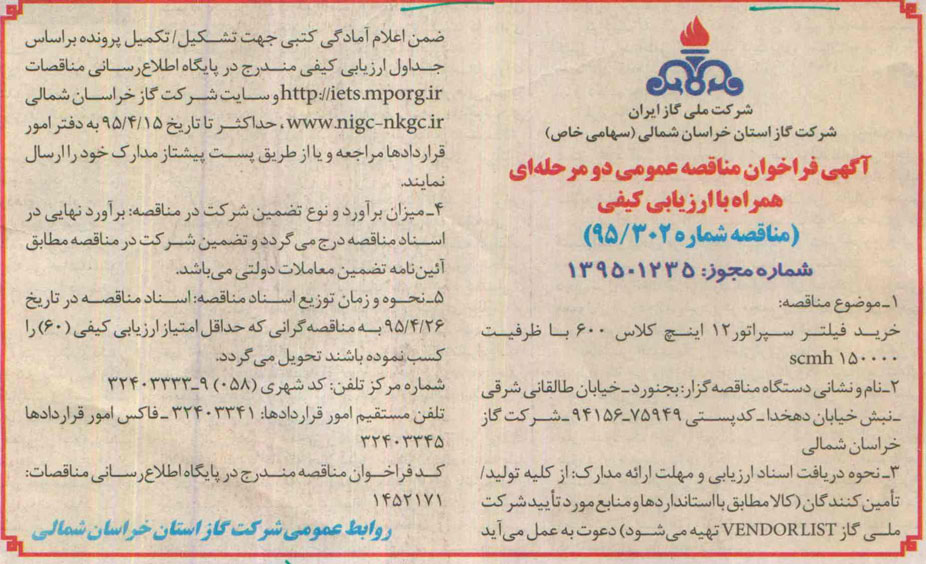 شرکت ملی گاز ایران
شرکت گاز استان خراسان شمالی (سهامی خاص)
آگهی فراخوان مناقصه عمومی دو مرحله‌ای
همراه با ارزیابی کیفی
(مناقصه شماره ۹۵/۳۰۲)
شماره مجوز: ۱۳۹۵۰۱۲۳۵
۱ـ موضوع مناقصه:
خرید فیلتر سپراتور ۱۲ اینچ کلاس ۶۰۰ با ظرفیت
۱۵۰۰۰۰ scmh
۲ـ نام و نشانی دستگاه مناقصه‌گزار: بجنورد ـ خیابان طالقانی شرقی
ـ نبش خیابان دهخدا ـ کدپستی ۷۵۹۴۹ـ۹۴۱۵۶ ـ شرکت گاز
خراسان شمالی
۳ـ نحوه دریافت اسناد ارزیابی و مهلت ارائه مدارک: از کلیه تولید/
تأمین کنندگان (کالا مطابق با استانداردها و منابع مورد تأیید شرکت
ملی گاز VENDORLIST تهیه می‌شود) دعوت به عمل می‌آید
ضمن اعلام آمادگی کتبی جهت تشکیل/ تکمیل پرونده براساس
جداول ارزیابی کیفی مندرج در پایگاه اطلاع‌رسانی مناقصات
http://iets.mporg.ir و سایت شرکت گاز خراسان شمالی
www.nigc-nkgc.ir، حداکثر تا تاریخ ۹۵/۴/۱۵ به دفتر امور
قراردادها مراجعه و یا از طریق پست پیشتاز مدارک خود را ارسال
نمایند.
۴ـ میزان برآورد و نوع تضمین شرکت در مناقصه: برآورد نهایی در
اسناد مناقصه درج می‌گردد و تضمین شرکت در مناقصه مطابق
آئین‌نامه تضمین معاملات دولتی می‌باشد.
۵ـ نحوه و زمان توزیع اسناد مناقصه: اسناد مناقصه در تاریخ
۹۵/۴/۲۶ به مناقصه‌گرانی که حداقل امتیاز ارزیابی کیفی (۶۰) را
کسب نموده باشند تحویل می‌گردد.
شماره مرکز تلفن: کد شهری (۰۵۸) ۹ـ۳۲۴۰۳۳۳۳
تلفن مستقیم امور قراردادها: ۳۲۴۰۳۳۴۱ ـ فاکس امور قراردادها
۳۲۴۰۳۳۴۵
کد فراخوان مناقصه مندرج در پایگاه اطلاع‌رسانی مناقصات:
۱۴۵۲۱۷۱
روابط عمومی شرکت گاز استان خراسان شمالی